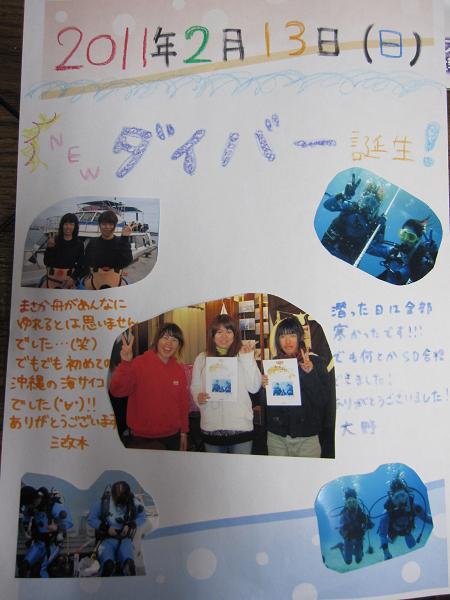 2011年2月13日(日)
NEW ダイバー誕生!
まさか舟があんなに
ゆれるとは思いません
でした…(笑)
でもでも初めての
沖縄の海サイコー
でした(°∀°)!!
ありがとうございます
潜った日は全部
寒かったです!!!
でも何とかSD合格
できました!
ありがとうございました!
大野